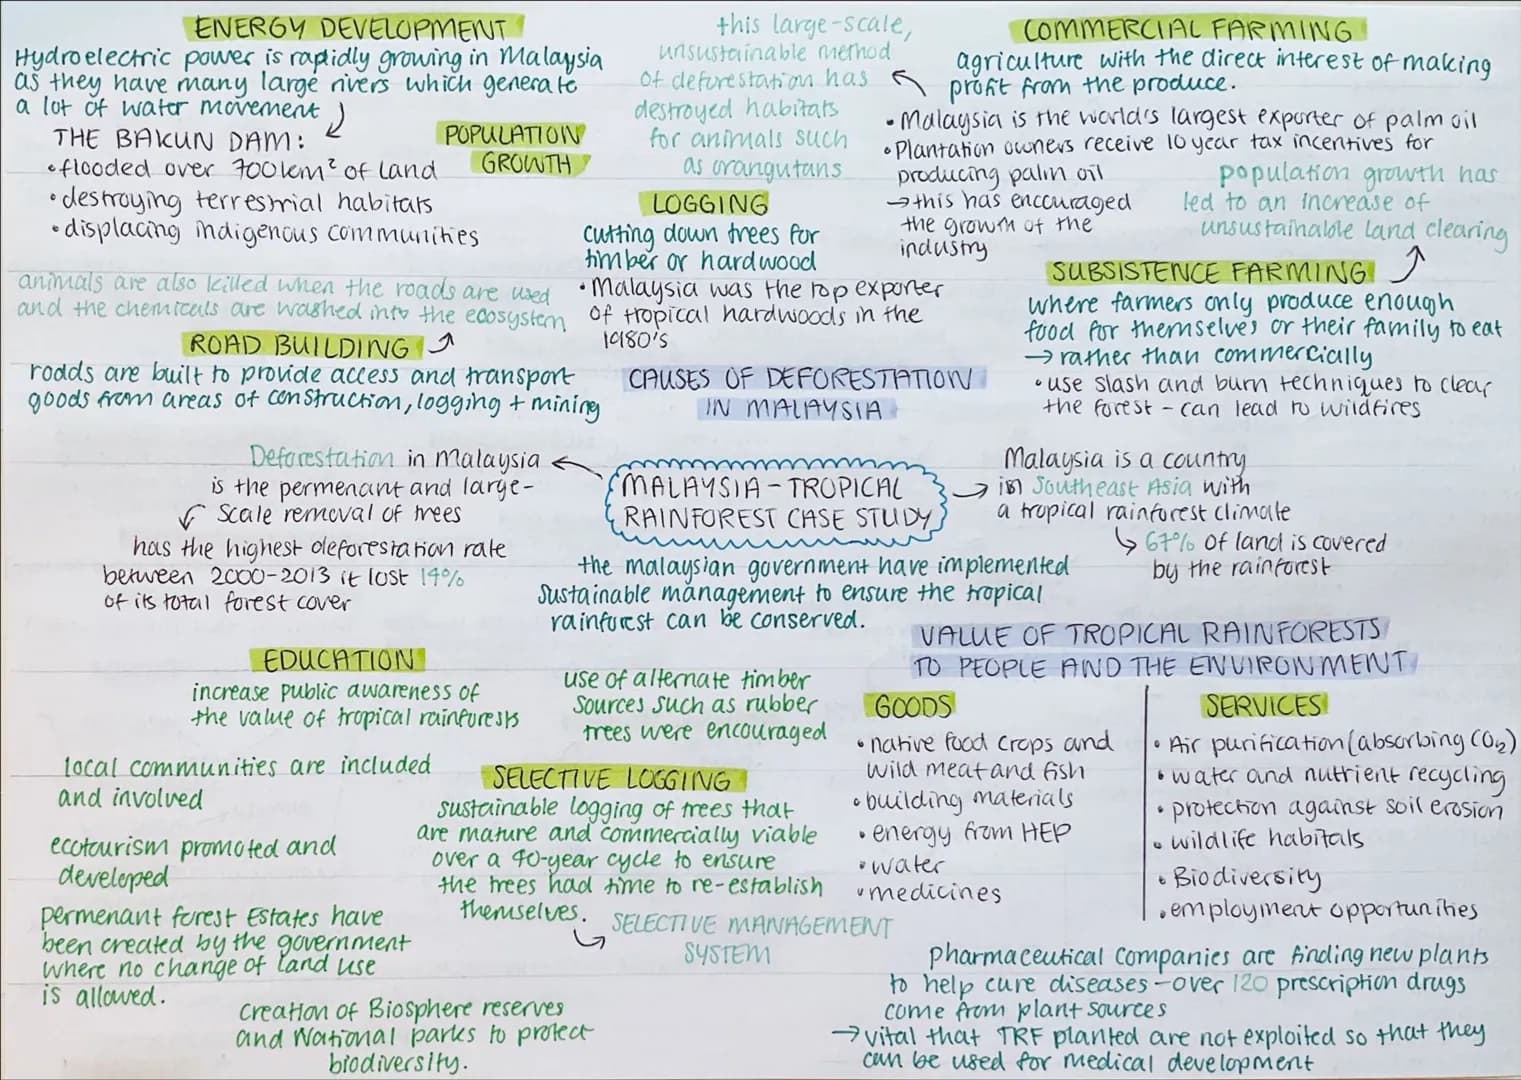 ENERGY DEVELOPMENT
Hydroelectric power is rapidly growing in Malaysia
as they have many large rivers which generate
a lot of water movement
THE BAKUN DAM:
• flooded over 700km² of land
• destroying terrestrial habitats
• displacing indigenous communities
POPULATION
GROWTH
this large-scale,
unsustainable method
of deforestation has
destroyed habitats
for animals such
as orangutans
COMMERCIAL FARMING
agriculture with the direct interest of making
profit from the produce.
• Malaysia is the world's largest exporter of palm oil
• Plantation owners receive 10 year tax incentives for
producing palm oil
→ this has encouraged
the growth of the
industry
population growth has
led to an increase of
unsustainable land clearing
LOGGING
cutting down trees for
timber or hardwood
• Malaysia was the top exporter
of tropical hardwoods in the
1980's
SUBSISTENCE FARMING
where farmers only produce enough
food for themselves or their family to eat
→ rather than commercially
• use slash and burn techniques to clear
the forest - can lead to wildfires
animals are also killed when the roads are used
and the chemicals are washed into the ecosystem
ROAD BUILDING
roads are built to provide access and transport
goods from areas of construction, logging + mining
CAUSES OF DEFORESTATION
IN MALAYSIA
Deforestation in Malaysia
is the permenant and large-
scale removal of trees
has the highest deforestation rate
between 2000-2013 it lost 14%
of its total forest cover
MALAYSIA - TROPICAL
RAINFOREST CASE STUDY
Malaysia is a country
in Southeast Asia with
a tropical rainforest climate
67% of land is covered
by the rainforest
the malaysian government have implemented
sustainable management to ensure the tropical
rainforest can be conserved.
EDUCATION
increase public awareness of
the value of tropical rainforests
local communities are included
and involved
ecotourism promoted and
developed
permenant forest Estates have
been created by the government
where no change of land use
is allowed.
Creation of Biosphere reserves
and National parks to protect
biodiversity.
use of alternate timber
sources such as rubber
trees were encouraged
SELECTIVE LOGGING
sustainable logging of trees that
are mature and commercially viable
over a 40-year cycle to ensure
the trees had time to re-establish
themselves.
SELECTIVE MANAGEMENT
SYSTEM
VALUE OF TROPICAL RAINFORESTS
TO PEOPLE AND THE ENVIRONMENT
GOODS
• native food crops and
wild meat and fish
• building materials
• energy from HEP
• water
• medicines
SERVICES
• Air purification (absorbing CO₂)
• water and nutrient recycling
• protection against soil erosion
• wildlife habitats
• Biodiversity
• employment opportunities
Pharmaceutical companies are finding new plants
to help cure diseases - over 120 prescription drugs
come from plant sources
→ vital that TRF planted are not exploited so that they
can be used for medical development